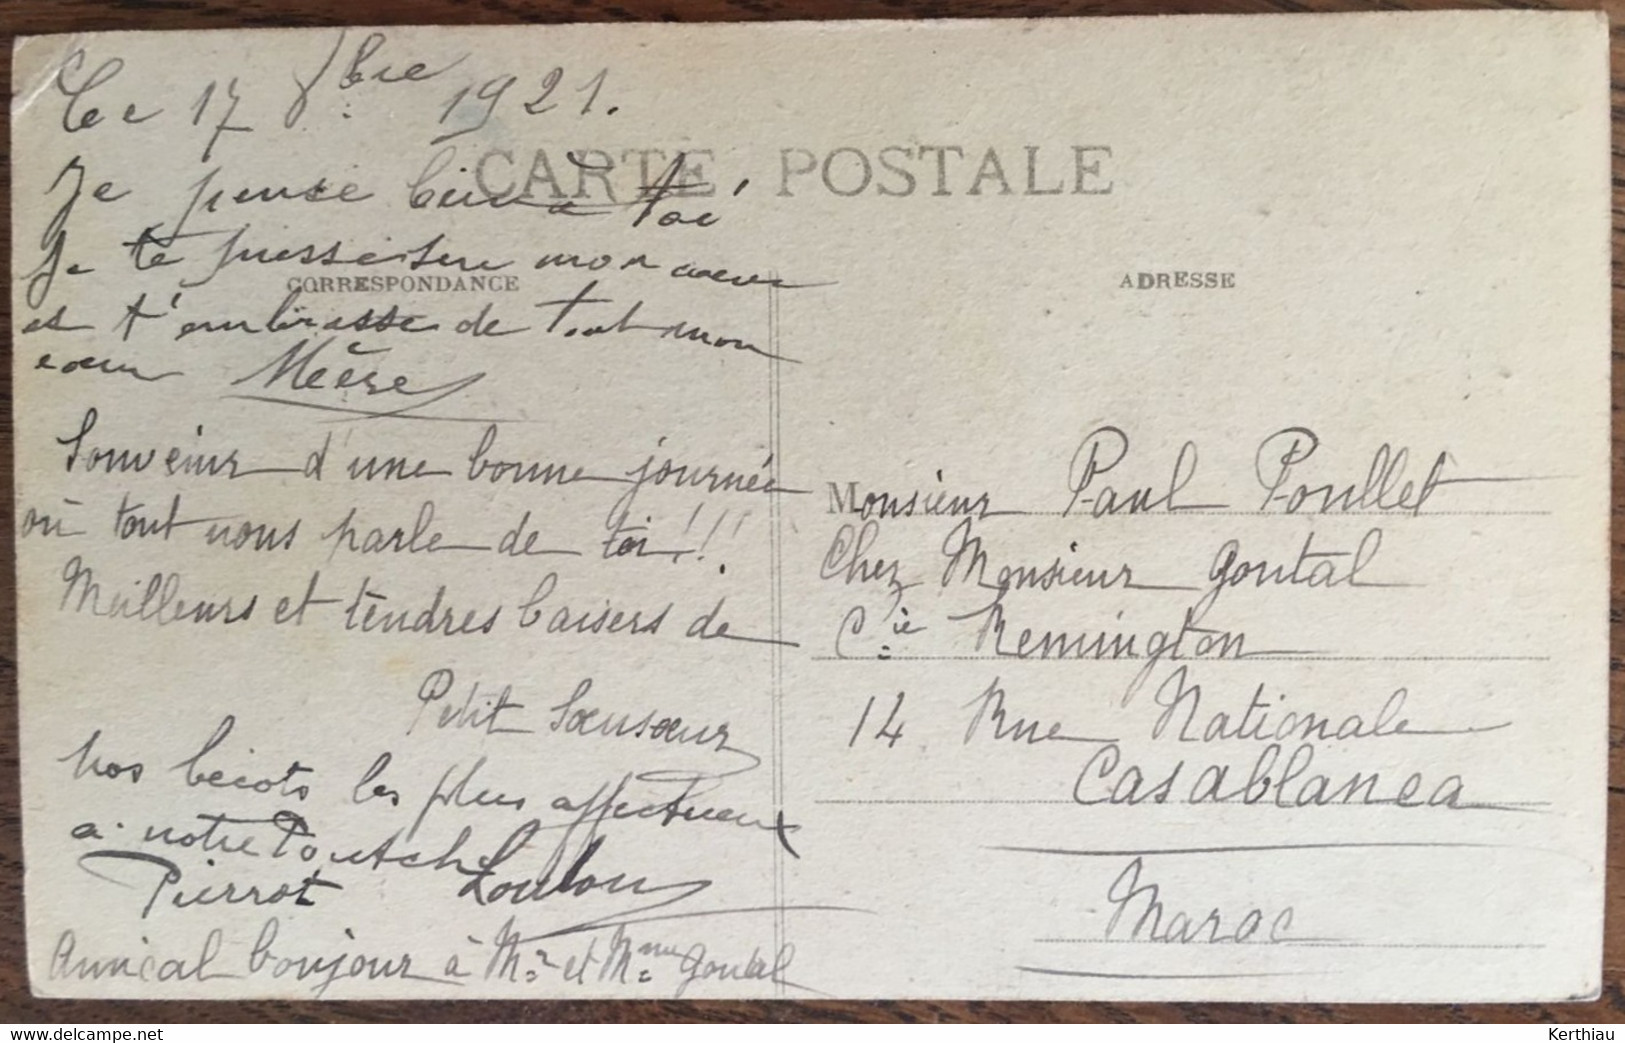 Ce 17 8bre 1921.
CARTE POSTALE
Je pense bien à toi
Je te presse sur mon coeur
CORRESPONDANCE
et t'embrasse de tout mon
coeur Mère
Souvenir d'une bonne journée
où tout nous parle de toi!!!
Meilleurs et tendres baisers de
Petit Soeusoeur
Nos bécots les plus affectueux
à notre Poutch
Pierrot Loulou
Amical bonjour à Mr et Mme Goutal
ADRESSE
Monsieur Paul Poullet
Chez Monsieur Goutal
Cie Remington
14 Rue Nationale
Casablanca
Maroc
delcampe.net
Kerthiau